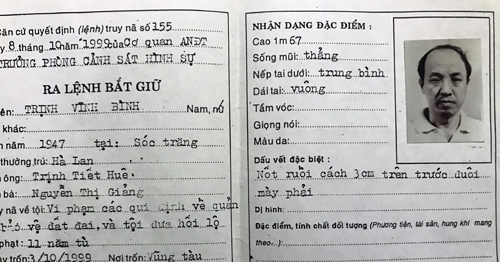 Căn cứ quyết định (lệnh) truy nã số 155
8 tháng 10 năm 1999 của Cơ quan ANĐT
TRƯỞNG PHÒNG CẢNH SÁT HÌNH SỰ
RA LỆNH BẮT GIỮ
TRỊNH VĨNH BÌNH Nam, nữ
khác:
năm 1947 tại: Sóc trăng
thường trú: Hà Lan
ông: Trịnh Tiết Huê.
bà: Nguyễn Thị Giảng
nã về tội: Vi phạm các qui định về quản
về đất đai, và tội đưa hối lộ
phạt: 11 năm tù
trốn: 3/10/1999 Nơi trốn: Vũng tàu
NHẬN DẠNG ĐẶC ĐIỂM :
Cao 1m 67
Sống mũi: thẳng
Nếp tai dưới: trung bình
Dái tai: vuông
Tầm vóc:
Giọng nói:
Màu da:
Dấu vết đặc biệt :
Nốt ruồi cách 3cm trên trước đuôi
mày phải
Dị hình:
Đặc điểm, tính chất đối tượng (Phương tiện, tài sản, hung khí mang
theo...)